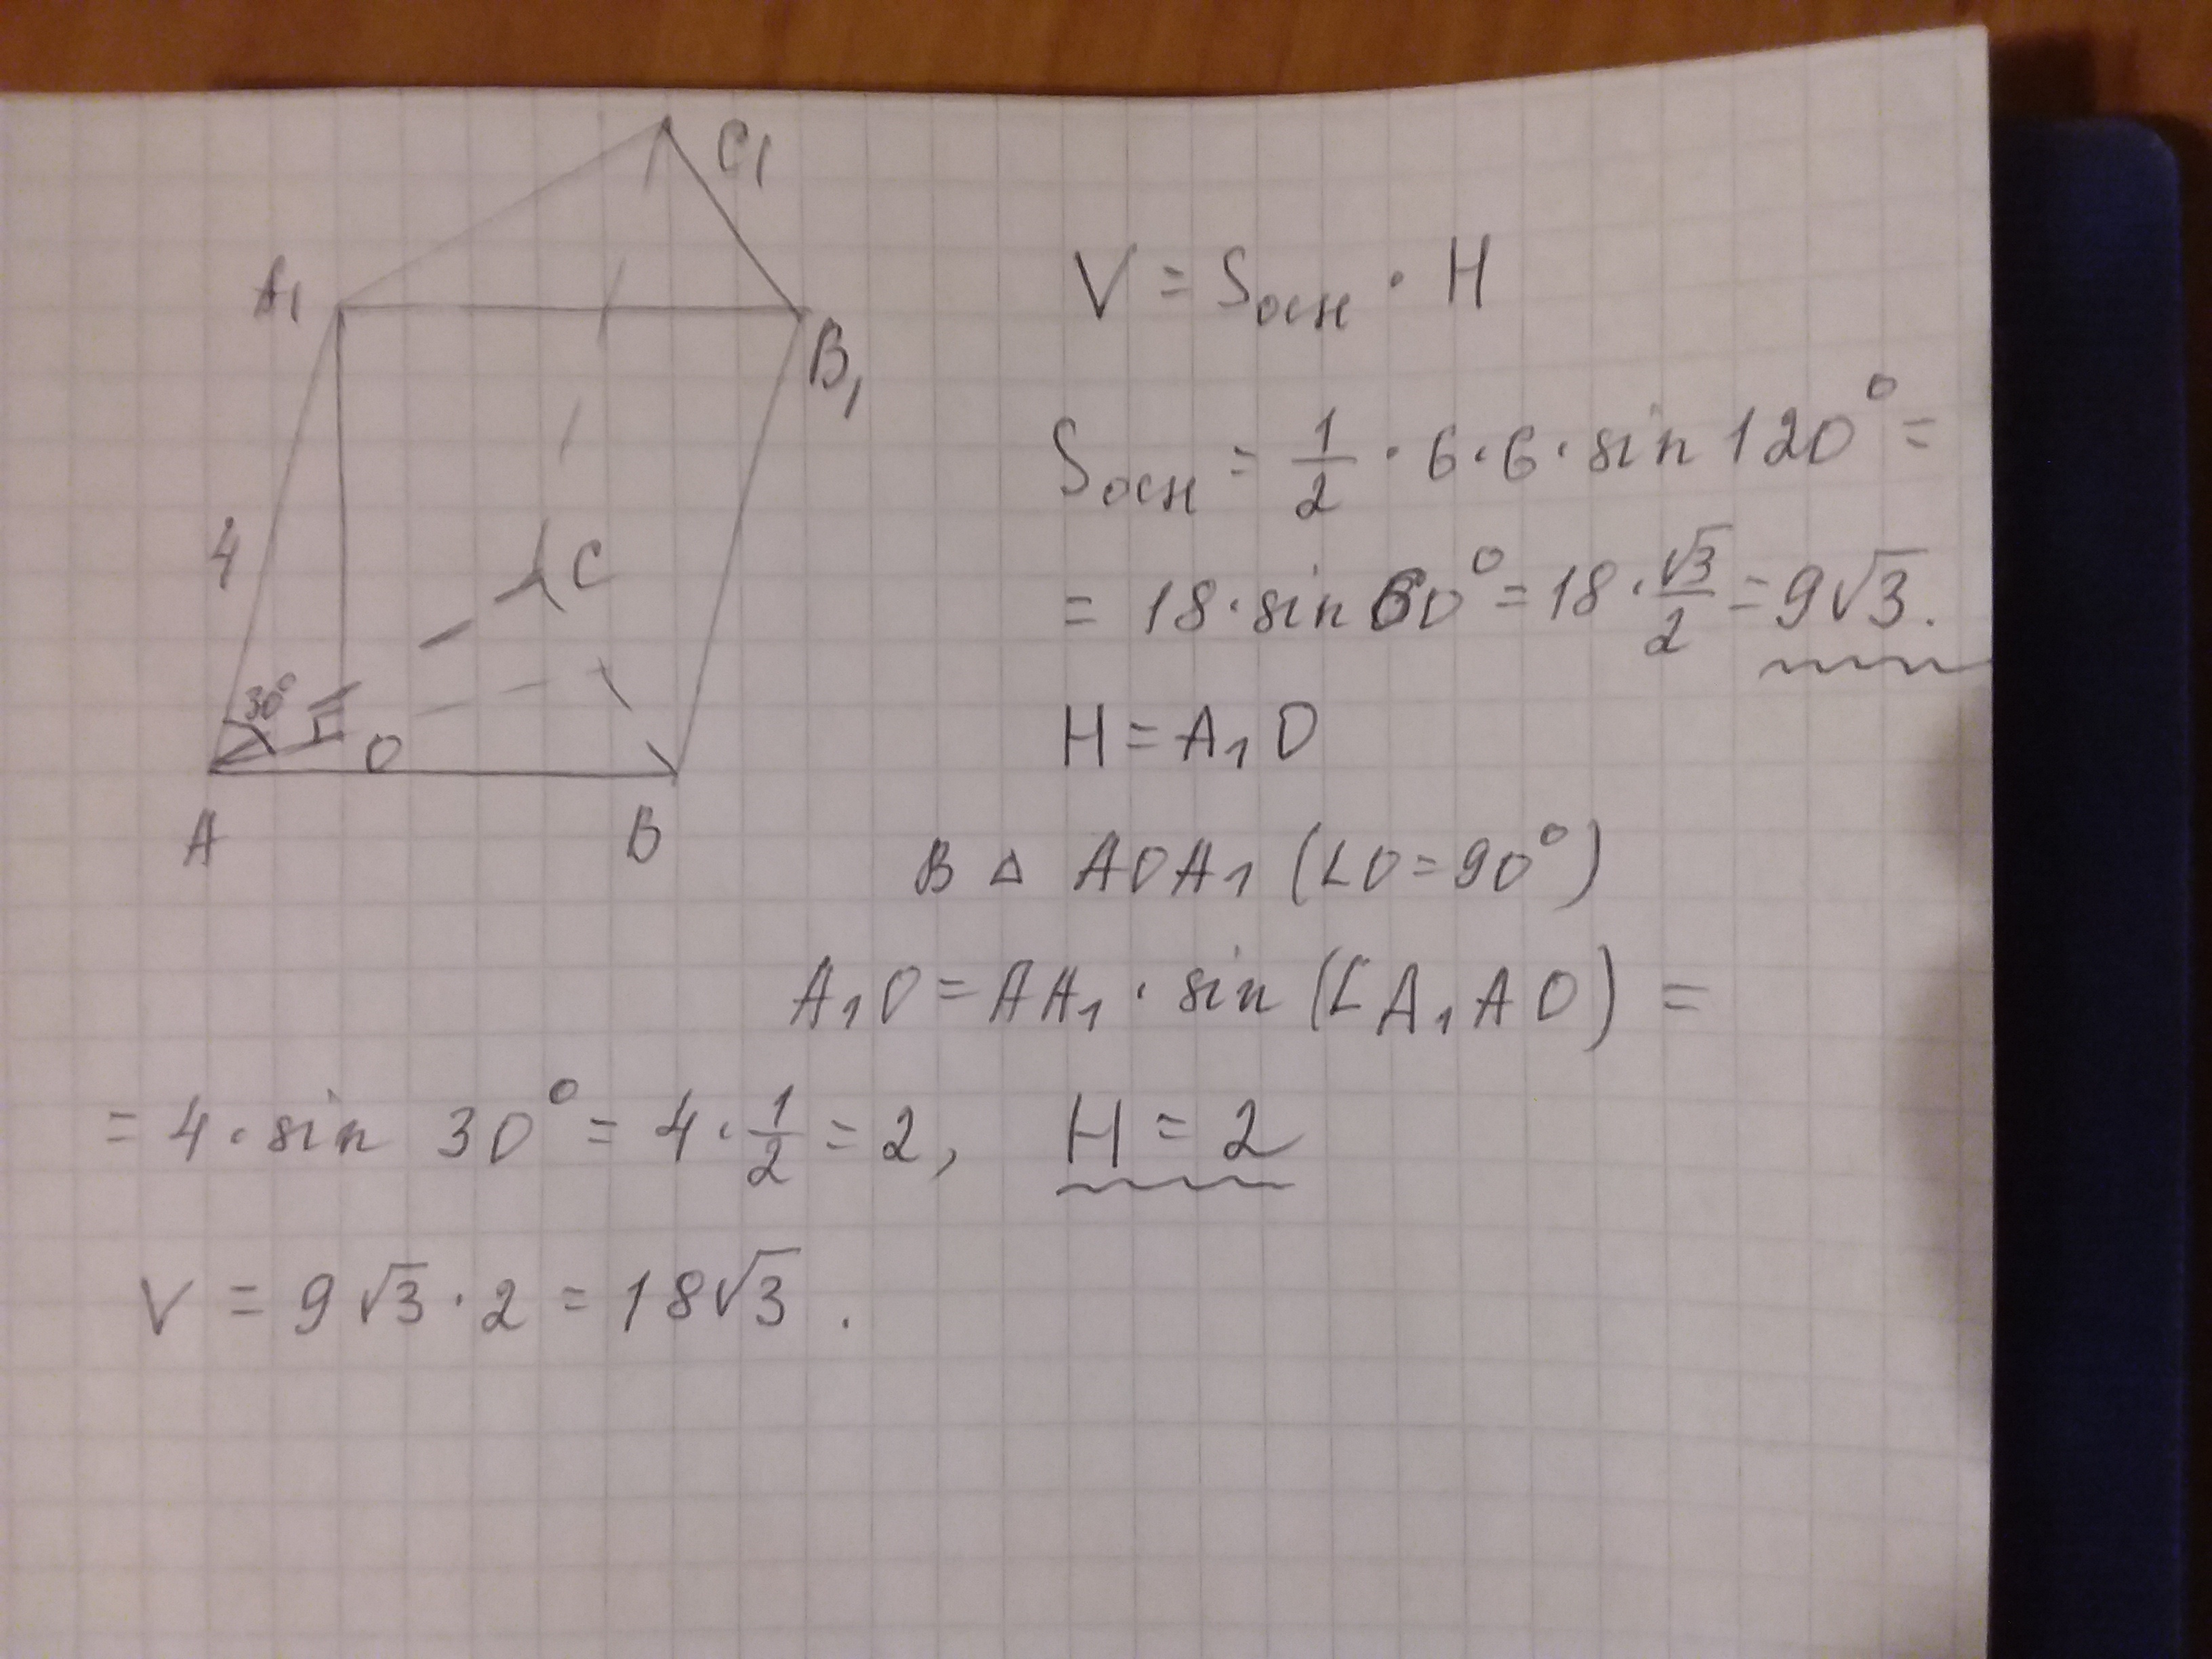 C₁
A₁
B₁
4
C
30°
O
A
B
V = Sосн · H
Sосн = 1/2 · 6 · 6 · sin 120° =
= 18 · sin 60° = 18 · √3/2 = 9√3.
H = A₁O
В △ AOA₁ (∠O = 90°)
A₁O = AA₁ · sin (∠A₁AO) =
= 4 · sin 30° = 4 · 1/2 = 2, H = 2
V = 9√3 · 2 = 18√3.